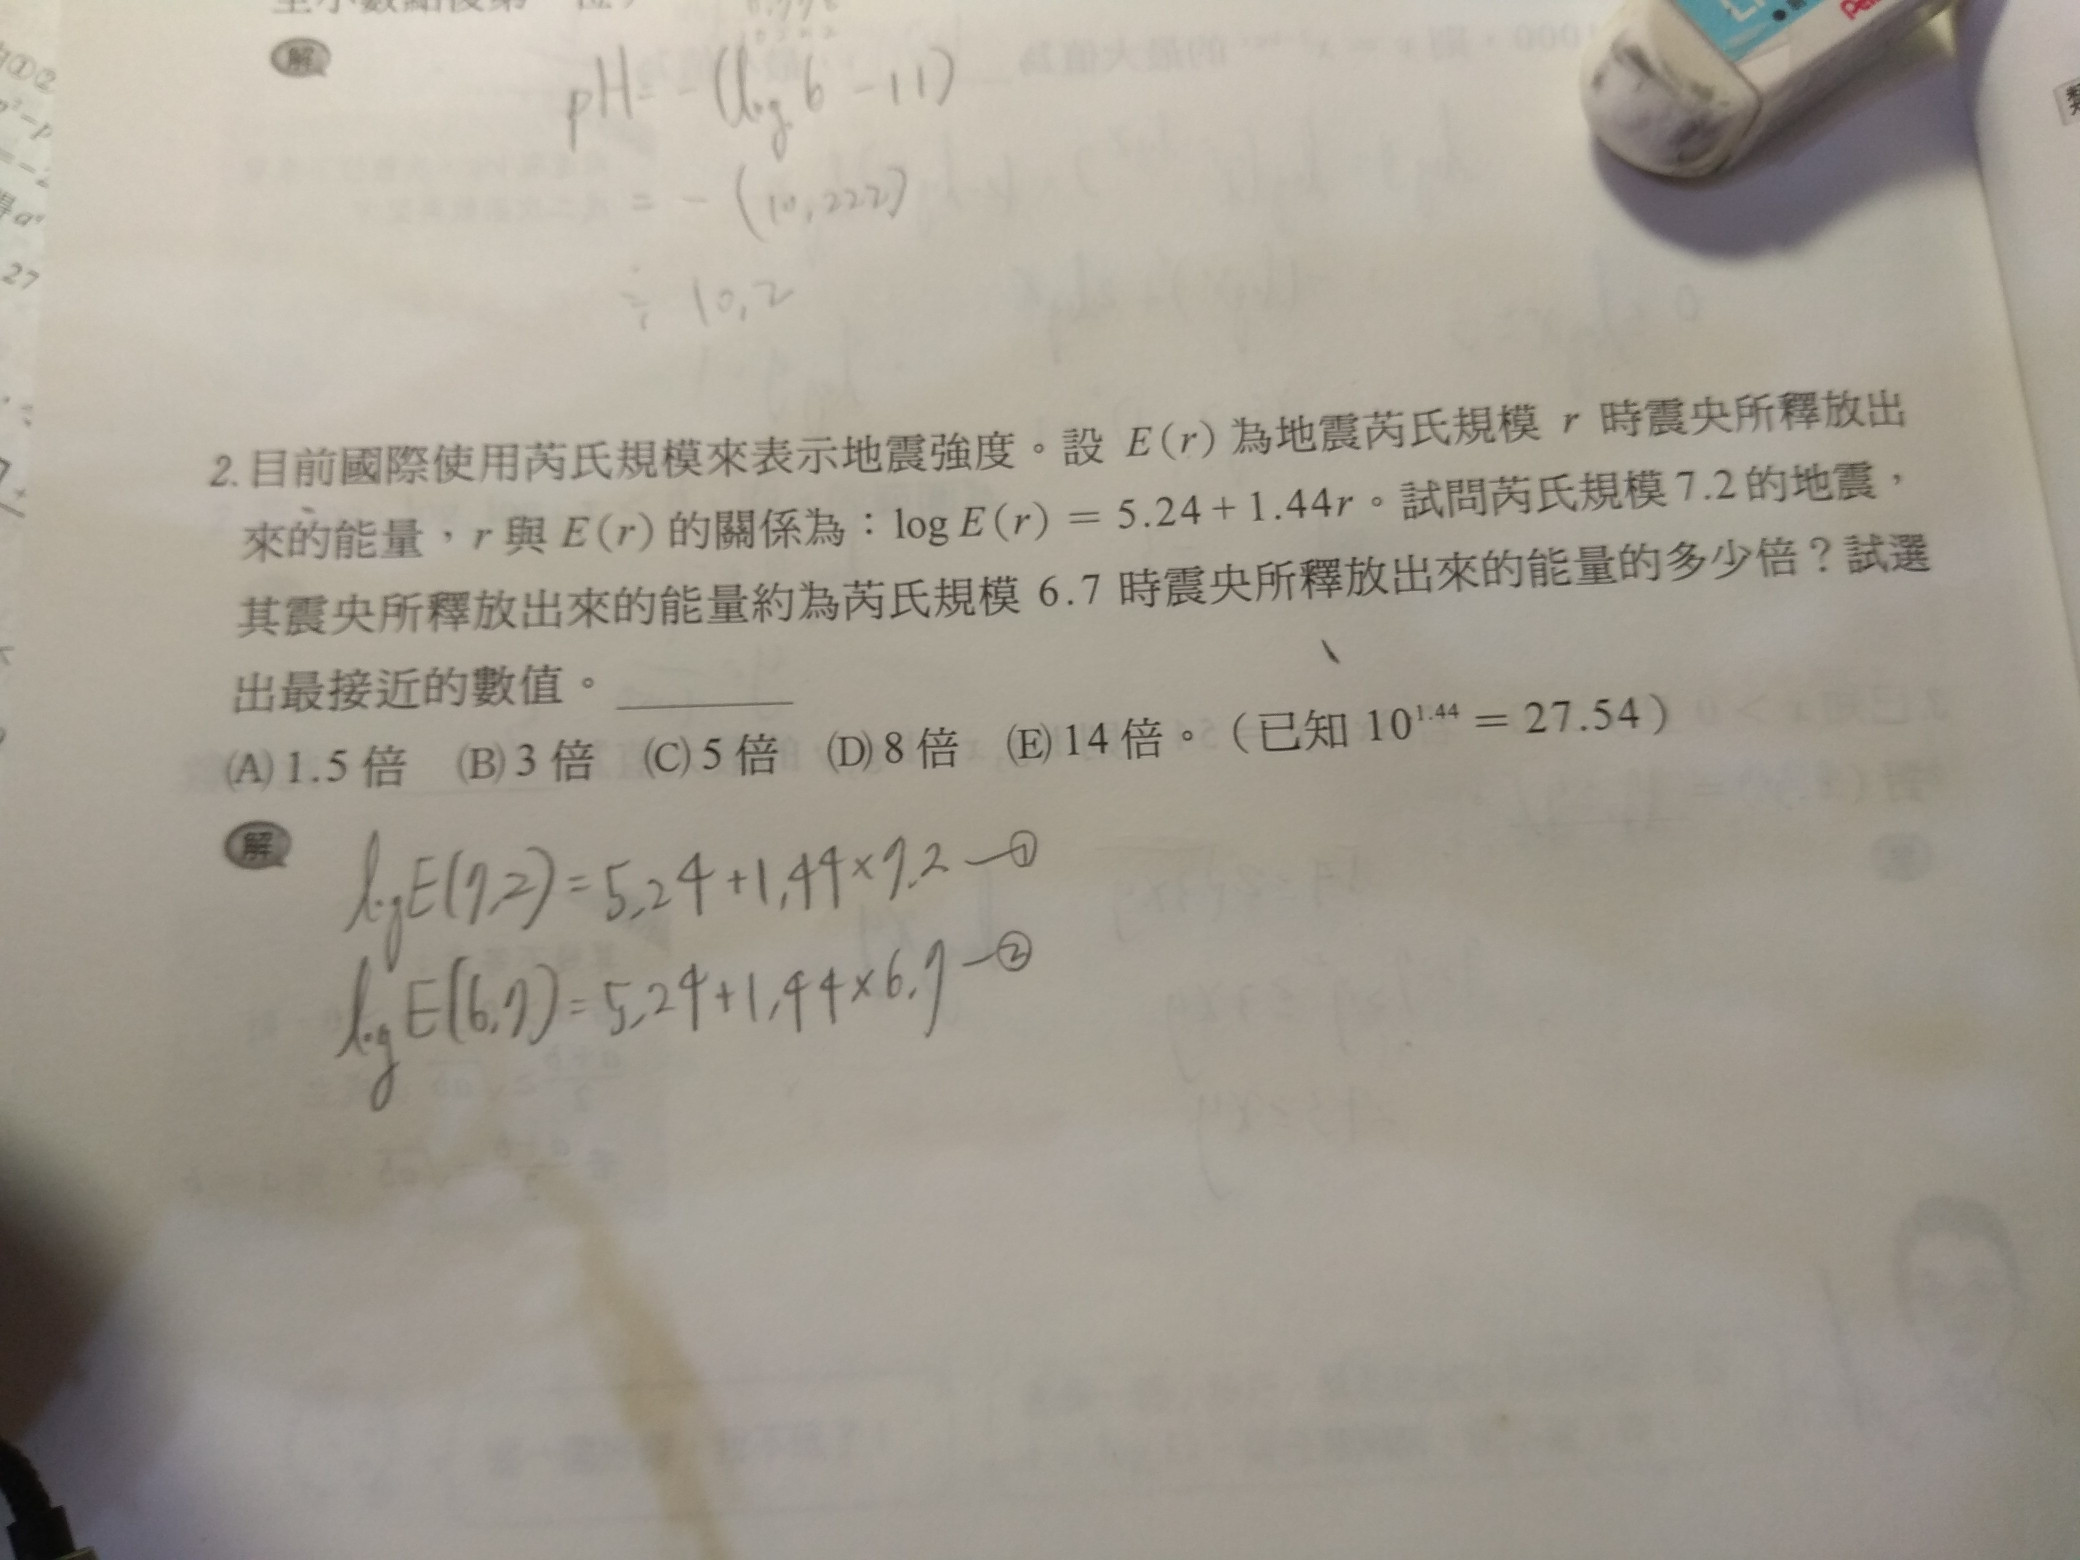 解
pH = -(log 6 - 11)
= -(10.222)
≒ 10.2
2. 目前國際使用芮氏規模來表示地震強度。設 E(r) 為地震芮氏規模 r 時震央所釋放出
來的能量，r 與 E(r) 的關係為：log E(r) = 5.24 + 1.44r。試問芮氏規模 7.2 的地震，
其震央所釋放出來的能量約為芮氏規模 6.7 時震央所釋放出來的能量的多少倍？試選
出最接近的數值。______
(A) 1.5 倍 (B) 3 倍 (C) 5 倍 (D) 8 倍 (E) 14 倍。（已知 10^1.44 = 27.54）
解
log E(7.2) = 5.24 + 1.44 × 7.2 —①
log E(6.7) = 5.24 + 1.44 × 6.7 —②